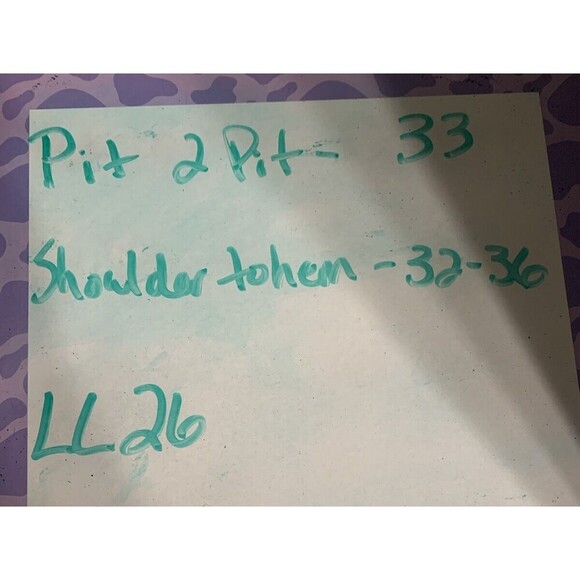 Pit 2 Pit - 33
Shoulder to hem - 32-36
LL 26